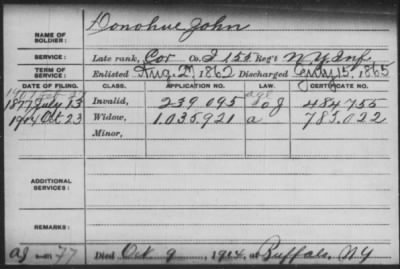 NAME OF SOLDIER: Donohue John
SERVICE: Late rank, Cor Co. I 155 Reg't N.Y. Inf.
TERM OF SERVICE: Enlisted Aug. 27 1862 Discharged July 15, 1865
DATE OF FILING. CLASS. APPLICATION NO. LAW. CERTIFICATE NO.
1877 July 13 Invalid, 239.095 484.755
1914 Oct 23 Widow, 1.035.921 a 783.022
Minor,
ADDITIONAL SERVICES:
REMARKS:
77 Died Oct 9, 1914, at Buffalo, NY